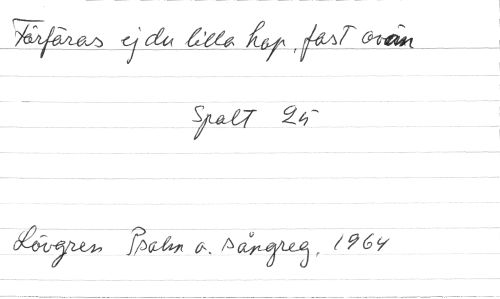 Förfäras ej du lilla hop, fast ovän
Spalt 25
Lövgren Psalm o. sångreg. 1964